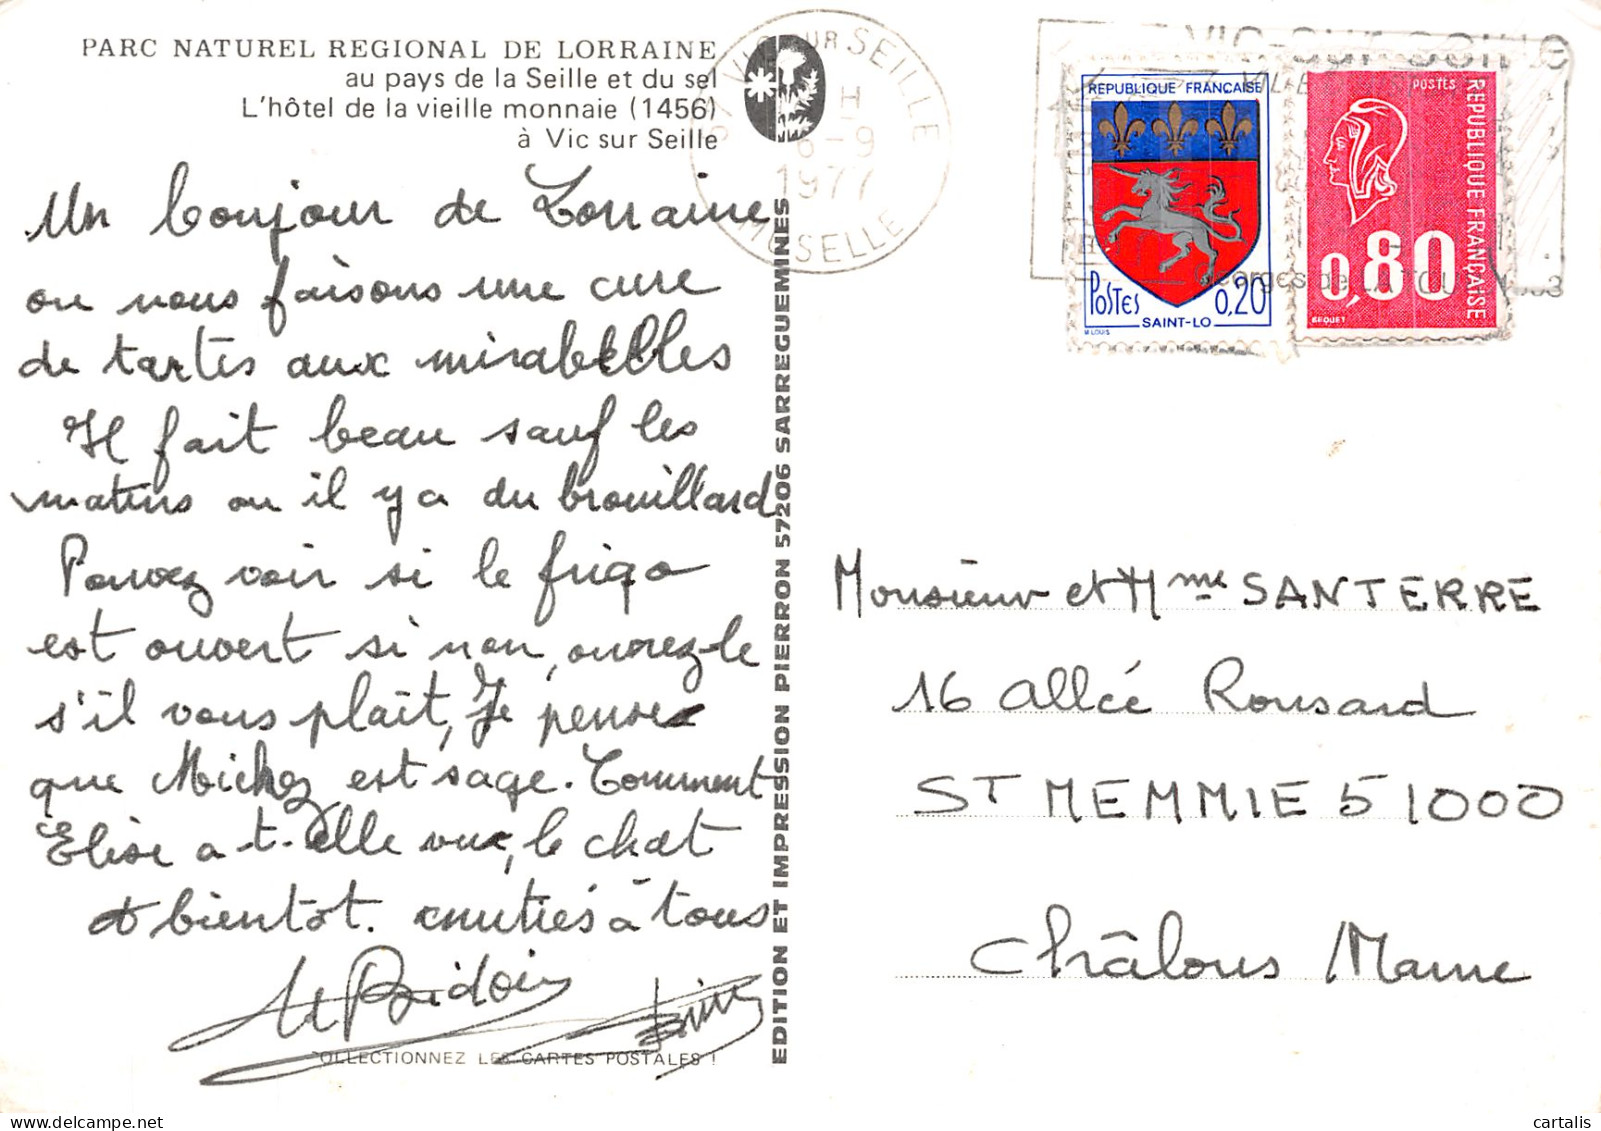 PARC NATUREL REGIONAL DE LORRAINE
au pays de la Seille et du sel
L'hôtel de la vieille monnaie (1456)
à Vic sur Seille
Un bonjour de Lorraine
ou nous faisons une cure
de tartes aux mirabelles
Il fait beau sauf les
matins ou il y a du brouillard
Pouvez voir si le frigo
est ouvert si non, ouvrez-le
s'il vous plaît, Je pense
que Mickey est sage. Comment
Elise a t-elle vu le chat
A bientôt. amitiés à tous
OLLECTIONNEZ LES CARTES POSTALES !
EDITION ET IMPRESSION PIERRON 57206 SARREGUEMINES
SUR SEILLE
H
6-9
1977
MOSELLE
REPUBLIQUE FRANÇAISE
POSTES 0,20
SAINT-LO
M LOUIS
POSTES
REPUBLIQUE FRANÇAISE
0,80
BEQUET
VIC-sur-Seille
Georges de LA TOUR
Monsieur et Mme SANTERRE
16 allée Ronsard
ST MEMMIE 51000
Châlons / Marne
cartalis